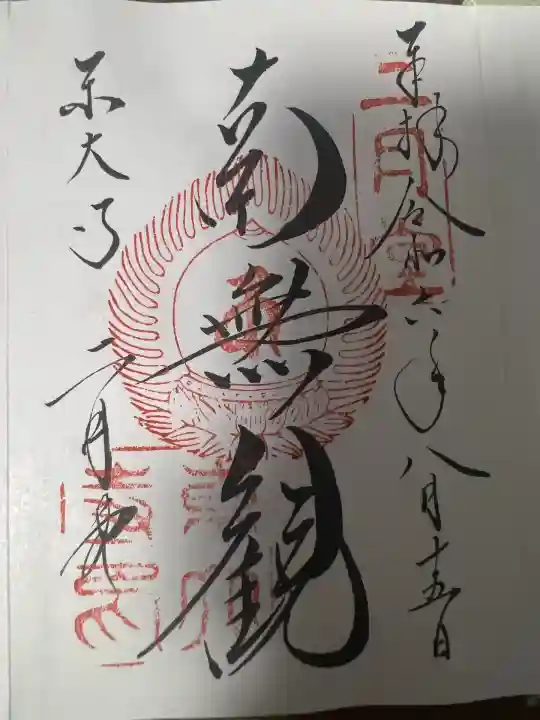 奉拝 令和六年八月十五日
二月堂
南無観
東大寺 二月堂